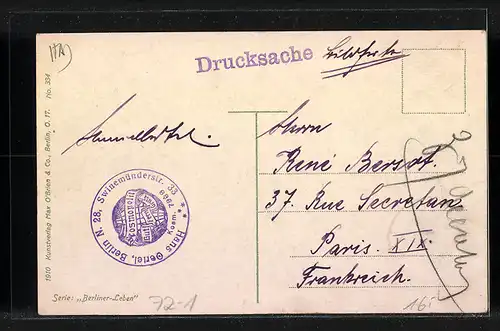 Drucksache
Bildkarte
Herrn
René Bersot.
37. Rue Secretan
Paris. XIX.
Frankreich.
Hans Oertel, Berlin N. 28, Swinemünderstr. 33
Kosm. 7099
Kosmopolit
1910 Kunstverlag Max O'Brien & Co., Berlin, O. 17. No. 334
Serie: „Berliner-Leben"
72-1
16.-